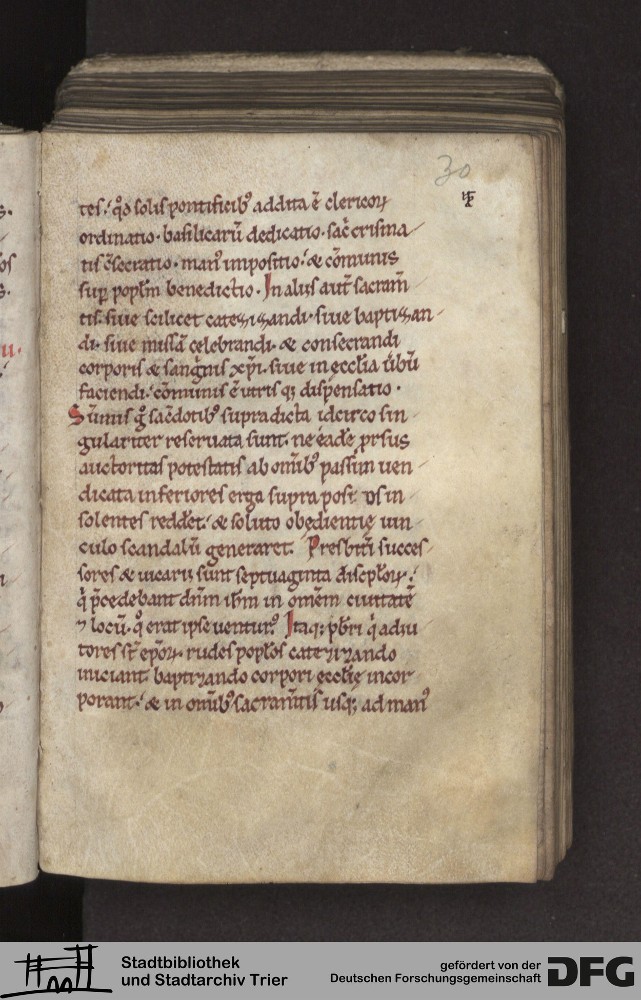 30
tes.' q̊o solis pontificib⁹ addita ē clericoꝝ
ordinatio · basilicarū dedicatio · sac̄ crisma
tis c̄secratio · man⁹ impositio.' & cōmunis
sup̱ popl̄m benedictio · In aliis aut̄ sacram̄
tis · siue scilicet catezizandi · siue baptizan
di · siue missā cęlebrandi · & consecrandi
corporis & sangͥnis xp̄i · siue in ęccl̄ia ūbū
faciendi.' cōmunis ē utris q; dispensatio ·
Sūmis g̊ sac̄dotib⁹ supradicta idcirco sin
gulariter reseruata sunt · ne eadē prsus
auctoritas potestatis ab om̄ib⁹ passim uen
dicata inferiores erga supra posi
solentes redd̄et.' & soluto obędientię uin
culo scandalū generaret. Presbit̄i succes
sores & uicarii sunt septuaginta discpl̄oꝝ.'
q̇ p̄cedebant dn̄m ih̄m in om̄em ciuitatē
⁊ locū · q̊ erat ipse ventur⁹ Itaq; pb̄ri q̇ adiu
tores st̄ ep̄oꝝ · rudes popl̄os catezizando
iniciant · baptizando corpori ęccl̄ię incor
porant.' & in om̄ib⁹ sacram̄tis usq; ad man⁹
Stadtbibliothek
und Stadtarchiv Trier
gefördert von der
Deutschen Forschungsgemeinschaft
DFG